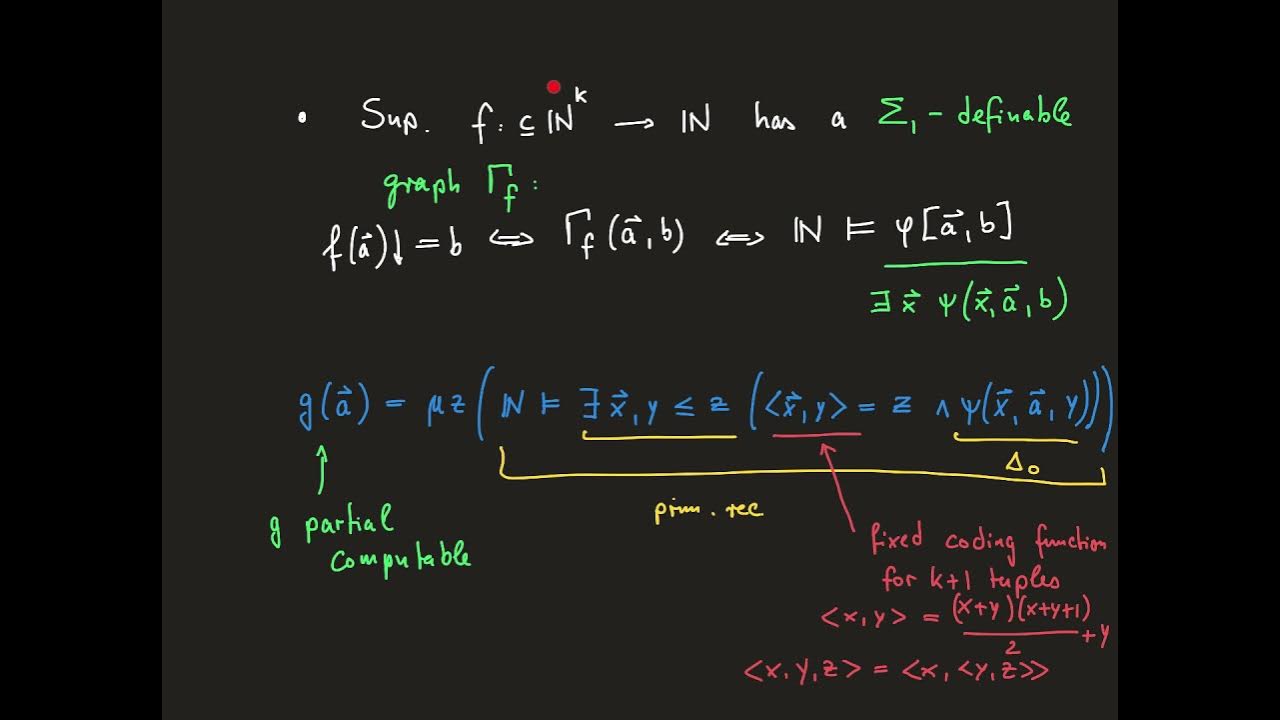 • Sup. f: ⊆ ℕ^k → ℕ has a Σ₁-definable
graph Γ_f :
f(a⃗)↓ = b ⇔ Γ_f(a⃗, b) ⇔ ℕ ⊨ φ[a⃗, b]
∃ x⃗ ψ(x⃗, a⃗, b)
g(a⃗) = μz(ℕ ⊨ ∃ x⃗, y ≤ z (<x⃗, y> = z ∧ ψ(x⃗, a⃗, y)))
Δ₀
prim. rec
g partial
computable
fixed coding function
for k+1 tuples
<x, y> = (x+y)(x+y+1)/2 + y
<x, y, z> = <x, <y, z>>